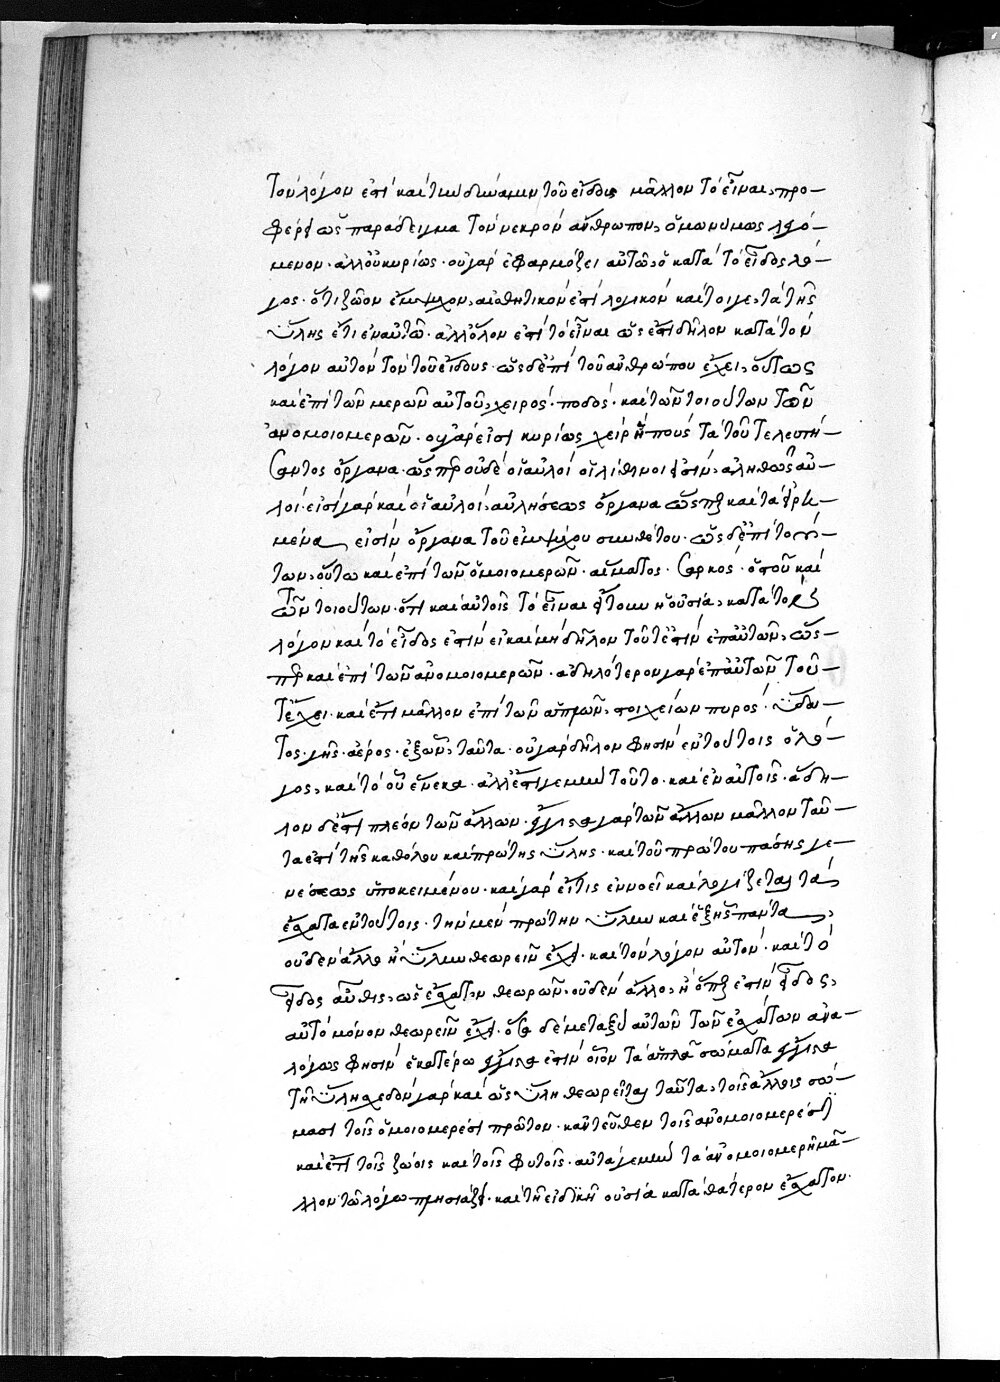 τὸν λόγον ἐστὶ καὶ τὴν δύναμιν τοῦ εἴδους μᾶλλον τὸ εἶναι, προ-
φέρει ὡς παράδειγμα τὸν νεκρὸν ἄνθρωπον, ὁμωνύμως λεγό-
μενον· ἀλλ' οὐ κυρίως· οὐ γὰρ ἐφαρμόζει αὐτῷ, ὁ κατὰ τὸ εἶδος λό-
γος· ὅτι ζῷον ἔμψυχον, αἰσθητικὸν ἐστὶ λογικόν καίτοιγε, τὰ τῆς
ὕλης ἔτι ἐν αὐτῷ· ἀλλ' ὅλον ἐστὶ τὸ εἶναι ὡς ἐπίδηλον κατὰ τὸν
λόγον αὐτὸν τὸν τοῦ εἴδους· ὡς δ' ἐπὶ τοῦ ἀνθρώπου ἔχει, οὕτως
καὶ ἐπὶ τῶν μερῶν αὐτοῦ, χειρός· ποδός· καὶ τῶν τοιούτων τῶν
ἀνομοιομερῶν· οὐ γάρ εἰσι κυρίως χεὶρ ἢ πούς τὰ τοῦ τελευτή-
σαντος ὄργανα· ὥσπερ οὐδὲ οἱ αὐλοὶ οἱ λίθινοί εἰσιν, ἀληθῶς αὐ-
λοί· εἰσὶ γὰρ καὶ οἱ αὐλοί, αὐλήσεως ὄργανα ὥσπερ καὶ τὰ εἰρη-
μένα, εἰσὶν ὄργανα τοῦ ἐμψύχου συνθέτου· ὡς δ' ἐπὶ τού-
των, οὕτω καὶ ἐπὶ τῶν ὁμοιομερῶν· αἵματος· σαρκός· ὀστοῦ καὶ
τῶν τοιούτων· ὅτι καὶ αὐτοῖς τὸ εἶναι ἤτουν ἡ οὐσία, κατὰ τὸν
λόγον καὶ τὸ εἶδος ἐστὶν εἰ καὶ μὴ δῆλον τοῦτ' ἐστὶν ἐπ' αὐτῶν, ὥσ-
περ καὶ ἐπὶ τῶν ἀνομοιομερῶν· ἀδηλότερον γὰρ ἐπ' αὐτῶν τοῦ-
τ' ἔχει· καὶ ἔτι μᾶλλον ἐπὶ τῶν ἁπλῶν, στοιχείων πυρός· ὕδα-
τος· γῆς· ἀέρος· ἐξ ὧν, ταῦτα· οὐ γὰρ δῆλον φησὶν ἐν τούτοις ὁ λό-
γος, καὶ τὸ οὗ ἕνεκα· ἀλλ' ἔστι γε μὴν τοῦτο· καὶ ἐν αὐτοῖς· ἄδη-
λον δ' ἐστὶ πλέον τῶν ἄλλων· ἔγγιστα γὰρ τῶν ἄλλων μᾶλλον ταῦ-
τα ἐστὶ τῆς καθόλου καὶ πρώτης ὕλης· καὶ τοῦ πρώτου πάσης γε-
νέσεως ὑποκειμένου· καὶ γὰρ εἴ τις ἐννοεῖ καὶ λογίζεται τὰ
ἔσχατα ἐν τούτοις· τὴν μὲν πρώτην ὕλην καὶ ἐξ ἧς πάντα,
οὐδὲν ἄλλο ἢ ὕλην θεωρεῖν ἔχει· καὶ τὸν λόγον αὐτόν· καὶ τὸ
εἶδος αὖθις, ὡς ἔσχατον θεωρῶν, οὐδὲν ἄλλο, ἢ ὅπερ ἐστὶν εἶδος,
αὐτὸ μόνον θεωρεῖν ἔχει· ὅσα δὲ μεταξὺ αὐτῶν τῶν ἐσχάτων ἀνα-
λόγως φησὶν ἑκατέρω ἔγγιστα ἐστὶν οἷον τὰ ἁπλᾶ σώματα ἔγγιστα
τῇ ὕλῃ σχεδὸν γὰρ καὶ ὡς ὕλη θεωρεῖται ταῦτα, τοῖς ἄλλοις σώ-
μασι τοῖς ὁμοιομερέσι πρῶτον· κἀντεῦθεν τοῖς ἀνομοιομερέσι
καὶ ἐπὶ τοῖς ζώοις καὶ τοῖς φυτοῖς· αὐτὰ γε μὴν τὰ ἀνομοιομερῆ μᾶ-
λλον τῷ λόγω πλησιάζει· καὶ τῇ εἰδικῇ οὐσία κατὰ θάτερον ἔσχατον·